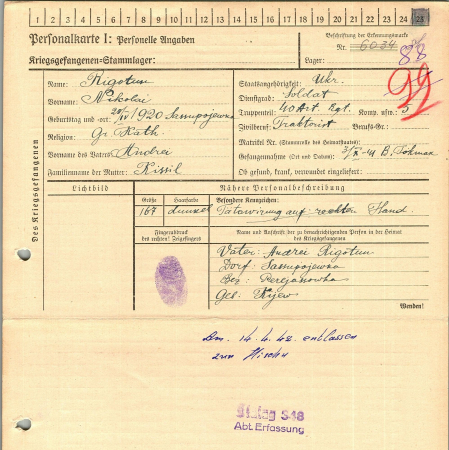 1 2 3 4 5 6 7 8 9 10 11 12 13 14 15 16 17 18 19 20 21 22 23 24 25
Personalkarte I: Personelle Angaben
Beschriftung der Erkennungsmarke
Nr. 6034
88
Kriegsgefangenen-Stammlager:
Lager:
99
Des Kriegsgefangenen
Name: Rigotun
Vorname: Nikolai
Geburtstag und -ort: /1920 Sassupojewka
Religion: Gr. Kath.
Vorname des Vaters: Andrei
Familienname der Mutter: Kissil
Staatsangehörigkeit: Ukr.
Dienstgrad: Soldat
Truppenteil: 40 Art. Rgt. Komp. usw.: 5
Zivilberuf: Traktorist Berufs-Gr.:
Matrikel Nr. (Stammrolle des Heimatstaates):
Gefangennahme (Ort und Datum): B. Tokmak
Ob gesund, krank, verwundet eingeliefert:
Lichtbild
Nähere Personalbeschreibung
Größe
Haarfarbe
Besondere Kennzeichen:
167
dunkel
Tatowirung auf rechter Hand
Fingerabdruck
des rechten! Zeigefingers
Name und Anschrift der zu benachrichtigenden Person in der Heimat
des Kriegsgefangenen
Vater: Andrei Rigotun
Dorf: Sassupojewka
Bez: Perejanowka
Geb: Kijew
Wenden!
Am 14. 4. 42 entlassen
zum
Stalag 348
Abt. Erfassung